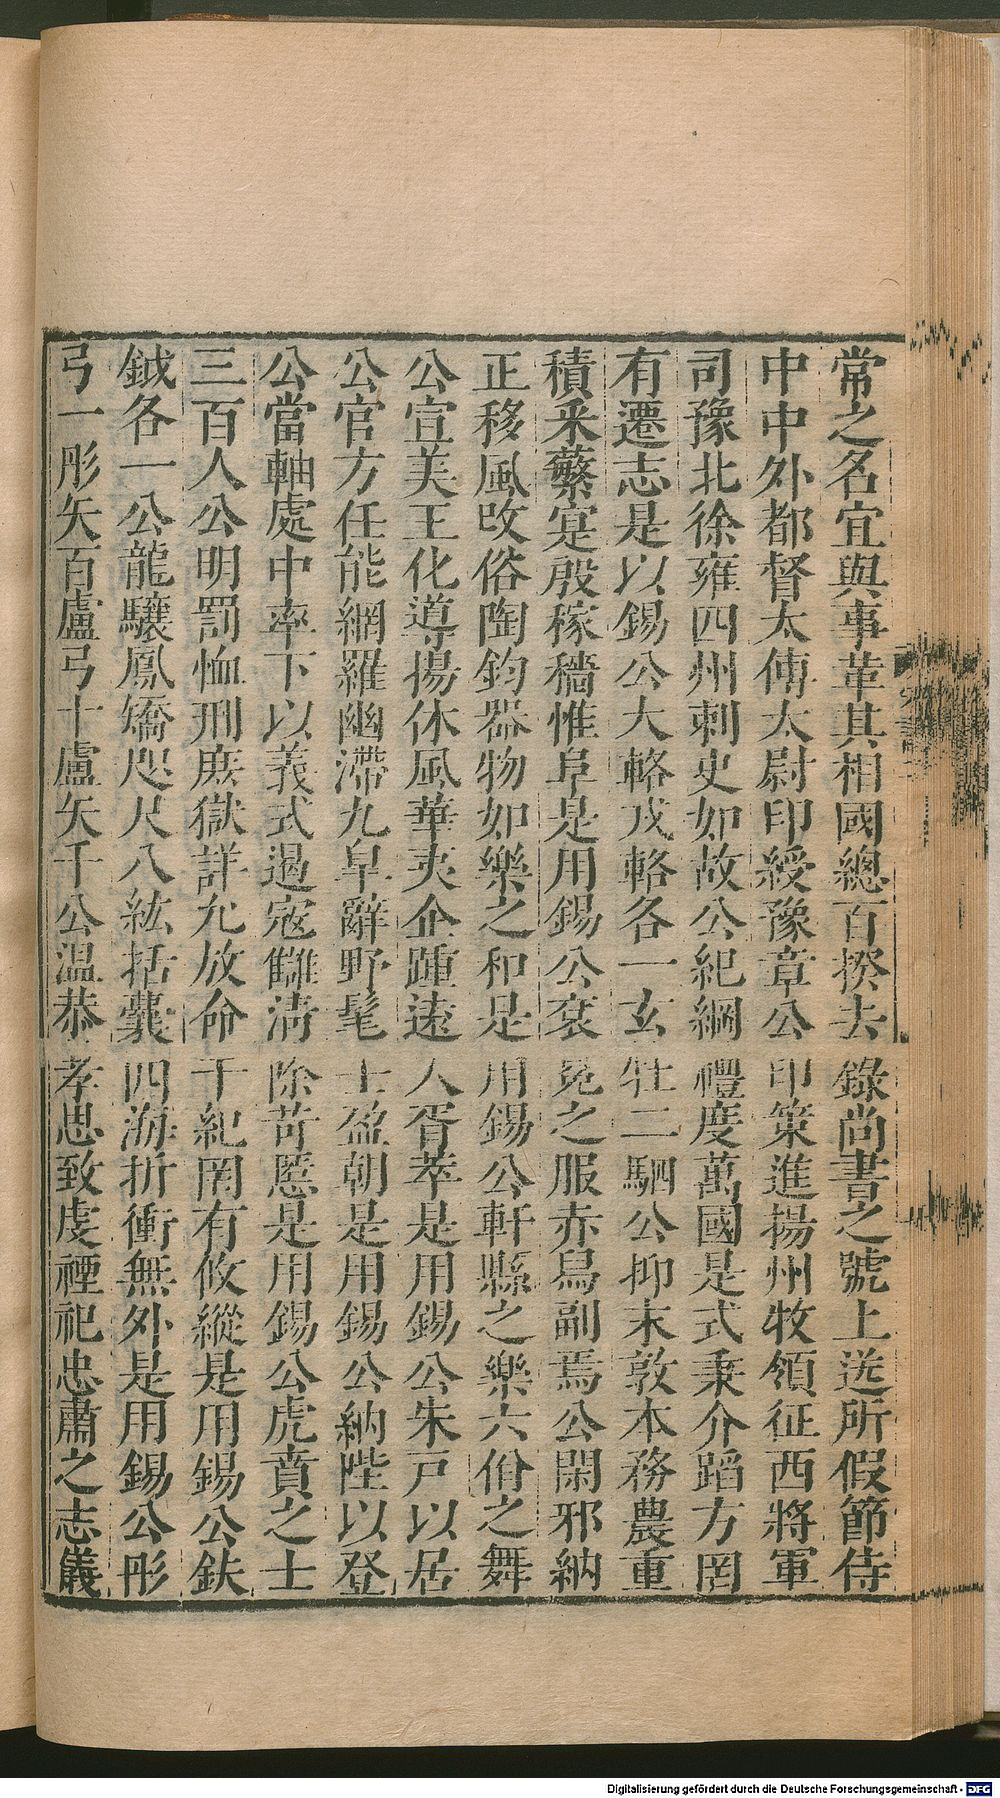 常之名宜與事革其相國總百揆去錄尚書之號上送所假節侍
中中外都督太傅太尉印綬豫章公印策進揚州牧領征西將軍
司豫北徐雍四州刺史如故公紀綱禮度萬國是式秉介蹈方罔
有遷志是以錫公大輅戎輅各一玄牡二駟公抑末敦本務農重
積采蘩寔殷稼穡惟阜是用錫公衮冕之服赤舃副焉公閑邪納
正移風改俗陶鈞器物如樂之和是用錫公軒縣之樂六佾之舞
公宣美王化導揚休風華夷企踵遠人胥萃是用錫公朱戸以居
公官方任能網羅幽滯九臯辭野髦士盈朝是用錫公納陛以登
公當軸處中率下以義式遏寇讎清除苛慝是用錫公虎賁之士
三百人公明罰恤刑庶獄詳允放命干紀罔有攸縱是用錫公鈇
鉞各一公龍驤鳳矯咫尺八紘括囊四海折衝無外是用錫公彤
弓一彤矢百盧弓十盧矢千公温恭孝思致虔禋祀忠肅之志儀
Digitalisierung gefördert durch die Deutsche Forschungsgemeinschaft - DFG